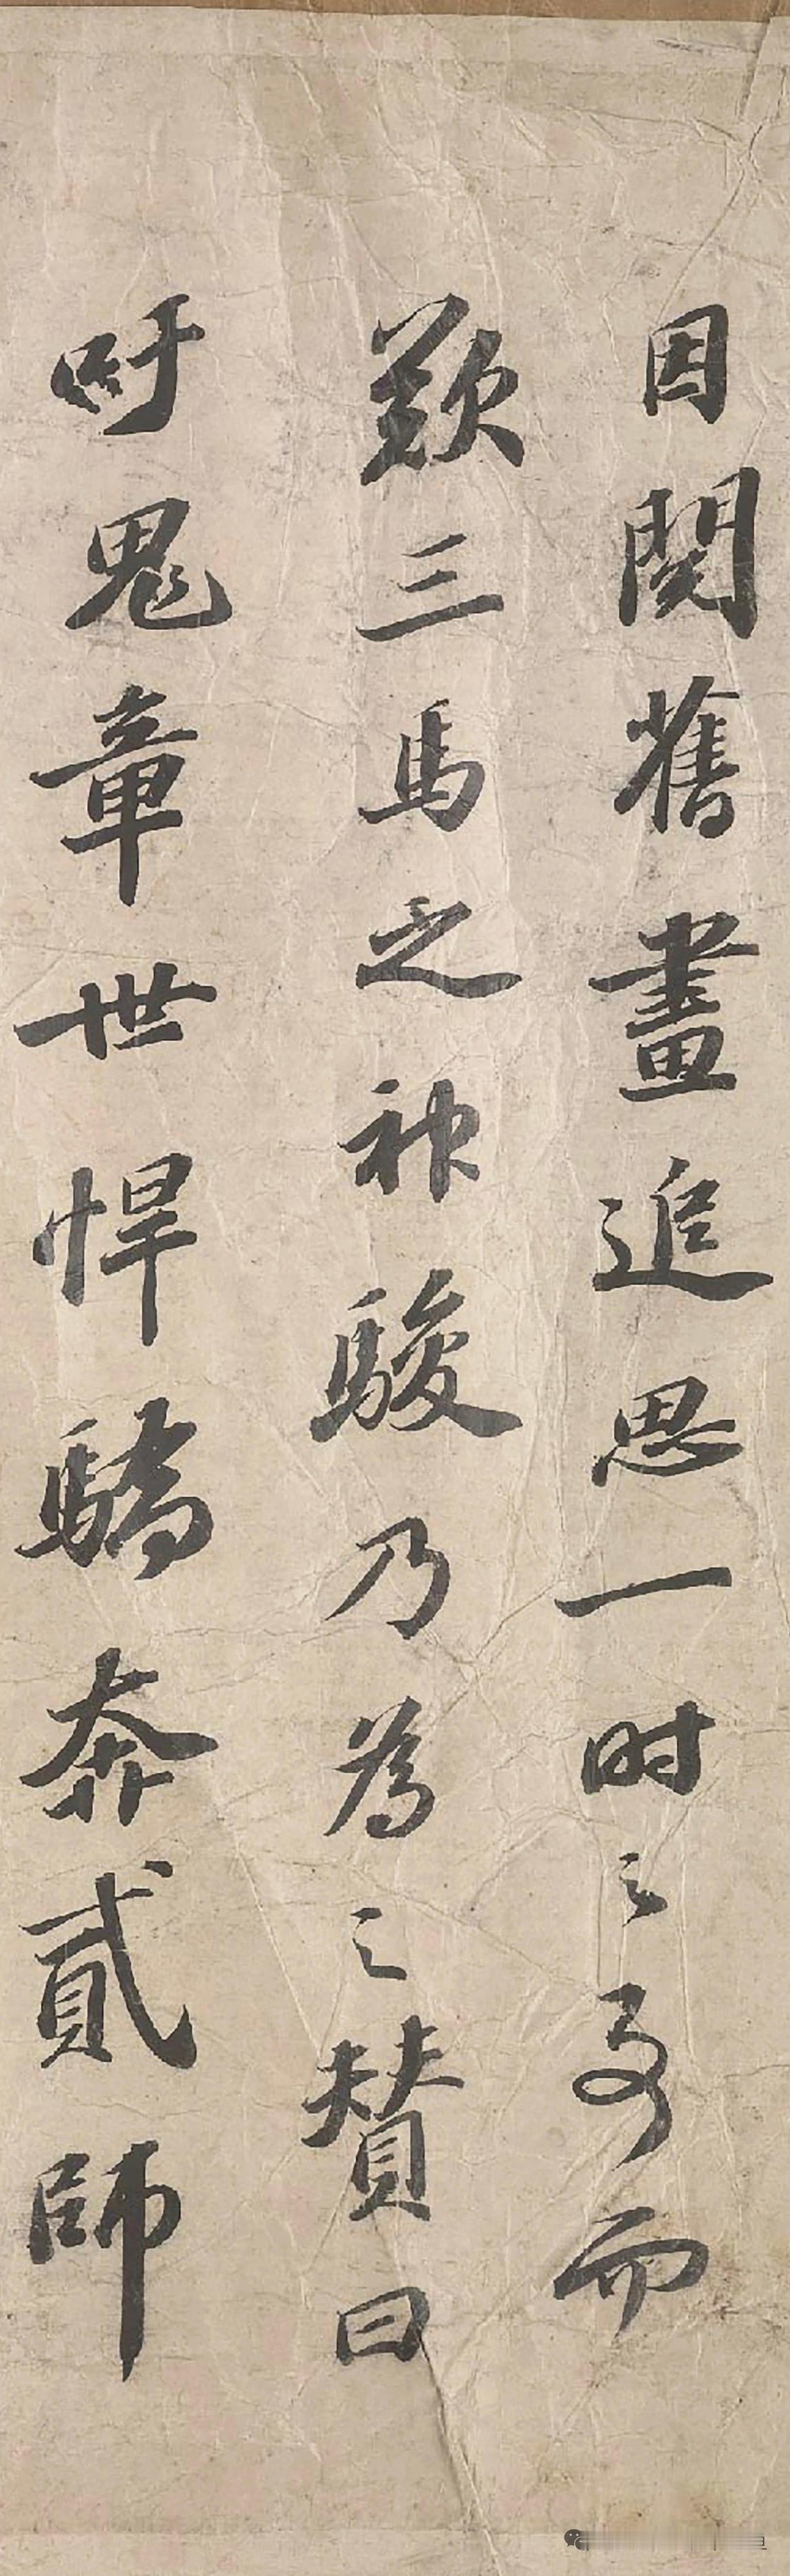 因閱舊畫追思一时之事而
歎三馬之神駿乃為之賛曰
吁鬼章世悍驕奔貳師